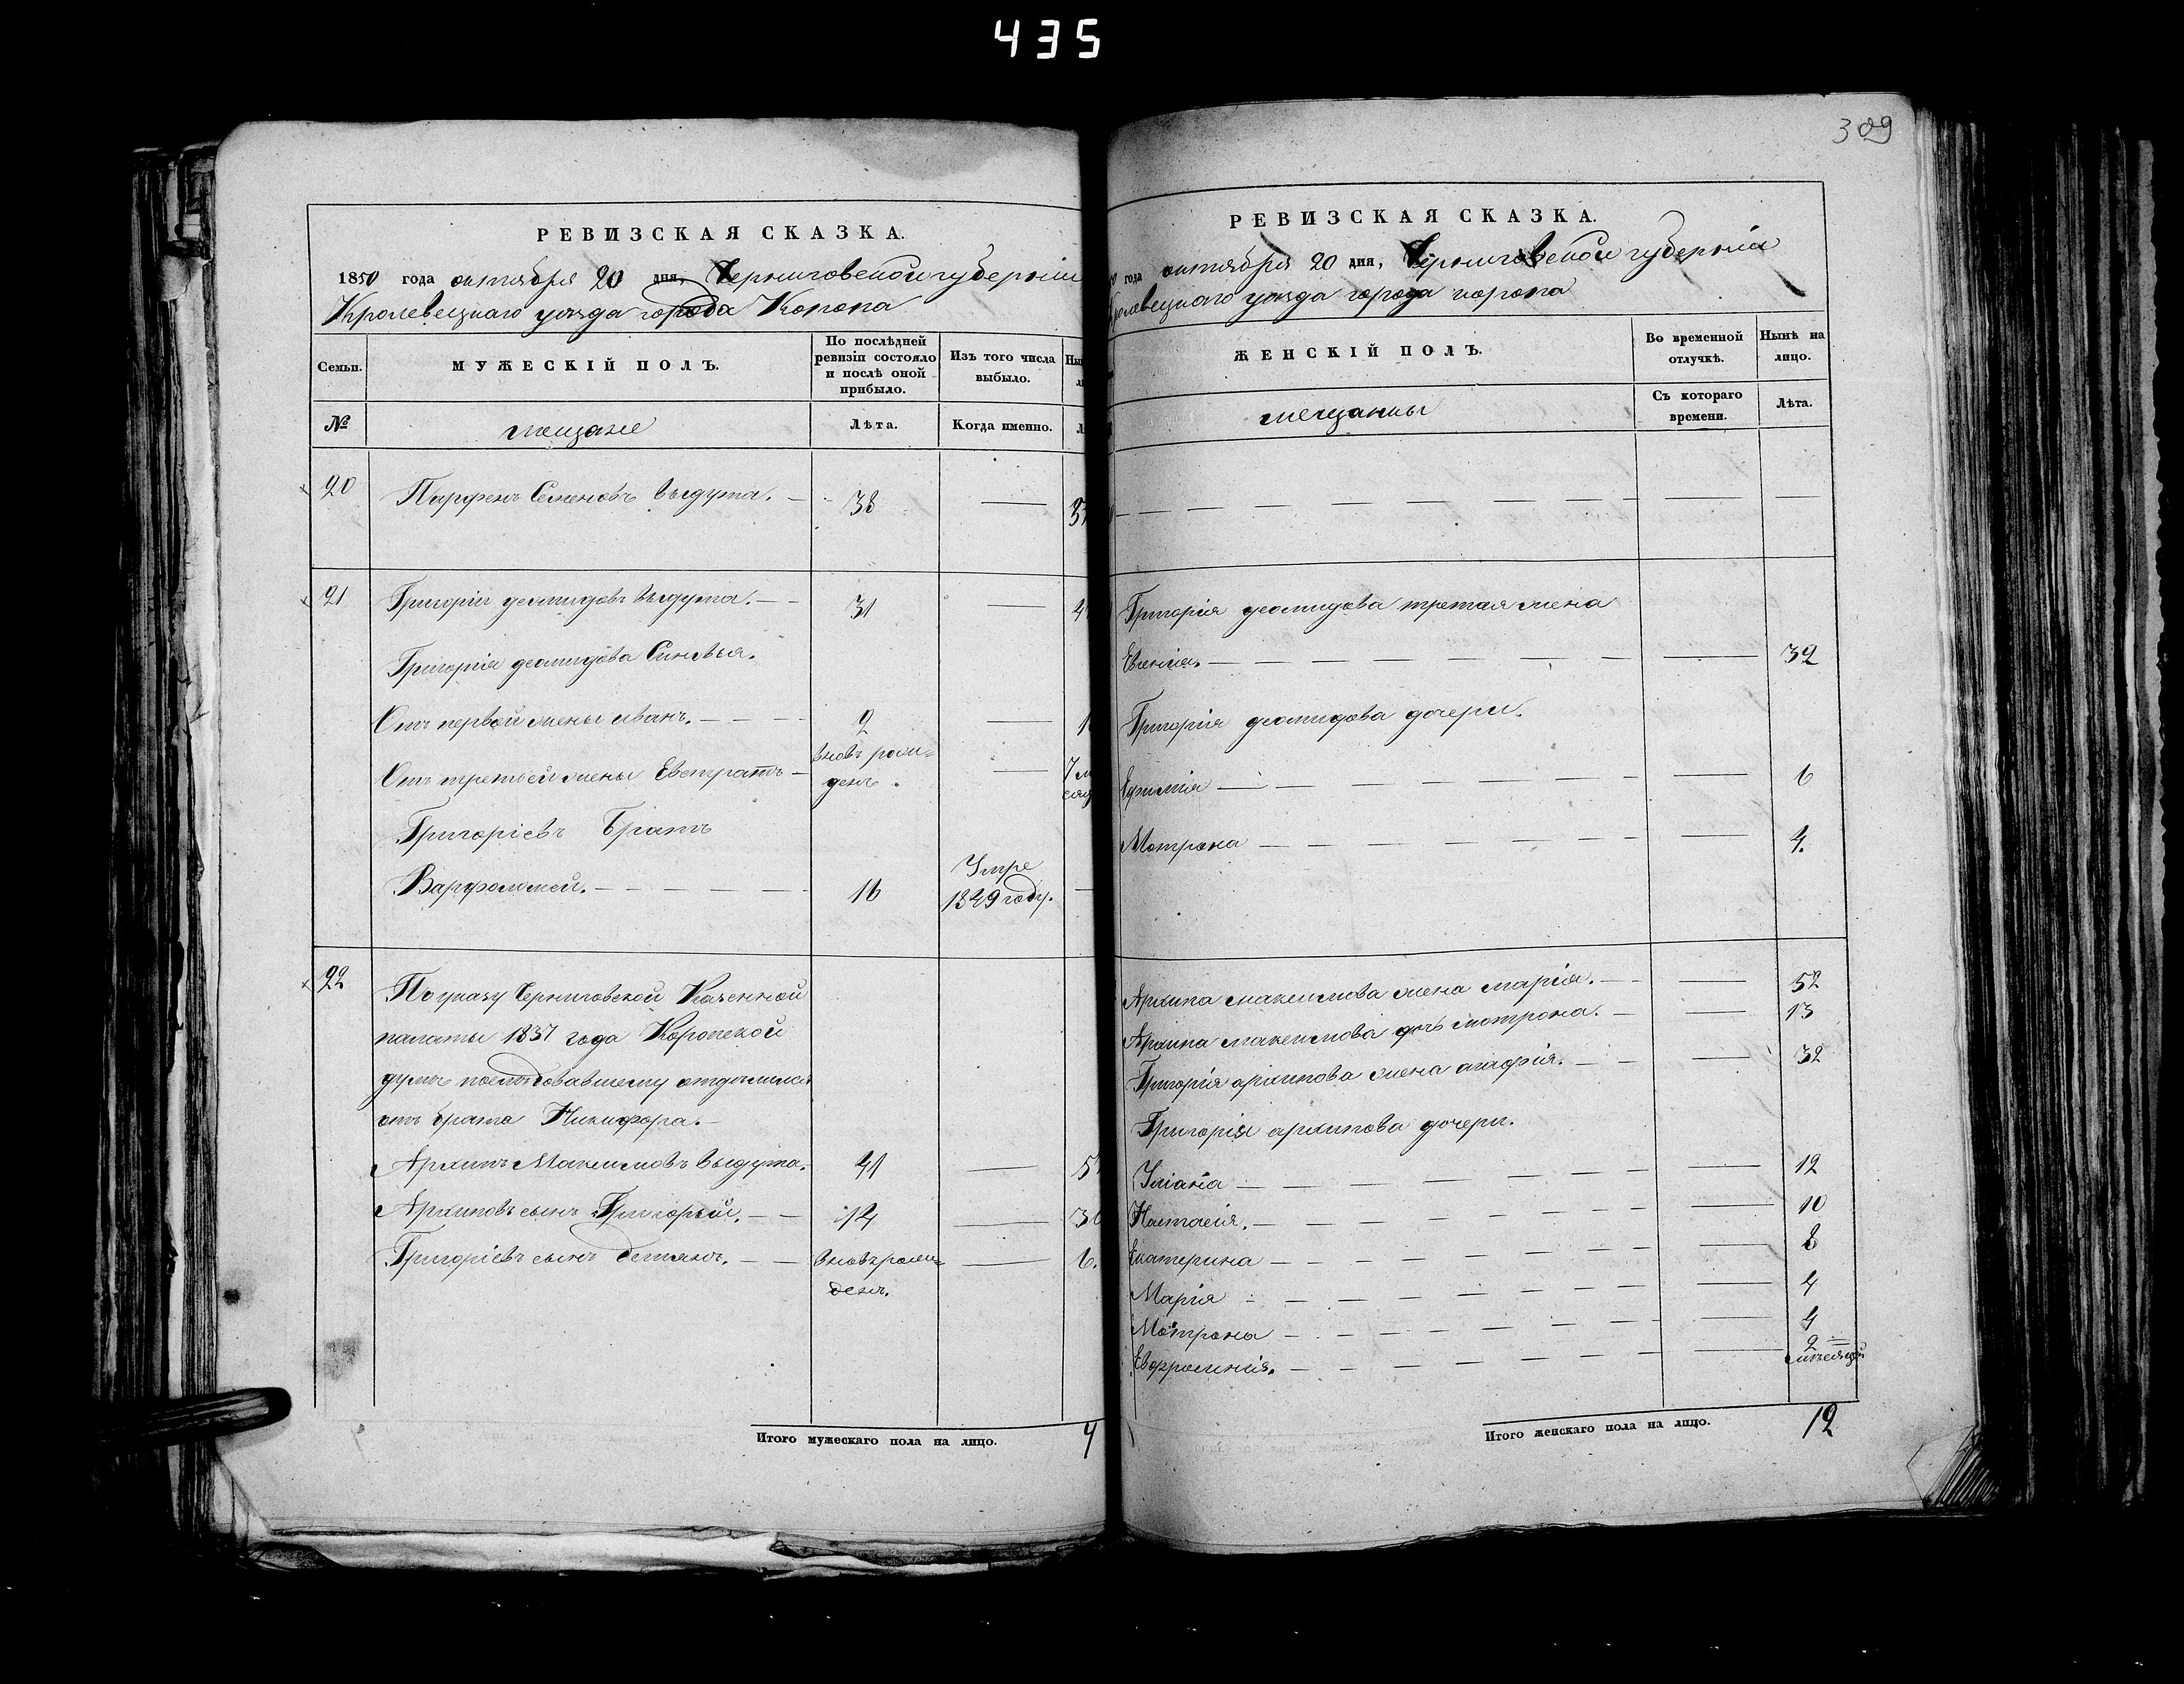 435
309
РЕВИЗСКАЯ СКАЗКА.
1850 года октября 20 дня, Черниговской губерніи
Кролевецкаго уѣзда города Коропа
Семьи.
МУЖЕСКІЙ ПОЛЪ.
По послѣдней ревизіи состояло и послѣ оной прибыло.
Изъ того числа выбыло.
№
мещане
Лѣта.
Когда именно.
20 Парфенъ Семеновъ Выдута. 38
21 Григорій деомидовъ Выдута. 31
Григорія деомидова Сыновья.
Отъ первой жены иванъ. 2
Отъ третьей жены Евстратъ вновь рож=
денъ.
Григоріевъ Братъ
Варфоломей. 16 Умре
1849 году.
22 По указу Черниговской Казенной
палаты 1837 года Коропской
думѣ последовавшему отдѣлился
отъ брата Никифора.
Архипъ Максимовъ Выдута. 41
Архиповъ сынъ Григорій. 14
Григоріевъ сынъ Демянъ. вновь рож= 6.
денъ.
Итого мужескаго пола на лицо.
РЕВИЗСКАЯ СКАЗКА.
года октября 20 дня, Черниговской губерніи
Кролевецкаго уѣзда города коропа
ЖЕНСКІЙ ПОЛЪ.
Во временной отлучкѣ.
Нынѣ на лицо.
мещанки
Съ котораго времени.
Лѣта.
Григорія деомидова третая жена
Евгенія. 32
Григорія деомидова дочери.
Ефимія 6
Мотрона 4.
Архипа максимова жена марія. 52
Архипа максимова дочь мотрона. 13
Григорія архипова жена агафія. 32
Григорія архипова дочери.
Уліана 12
Настасія. 10
Екатерина 8
Марія 4
Мотрона 4
Евфросинія. 2
месяца
Итого женскаго пола на лицо. 12